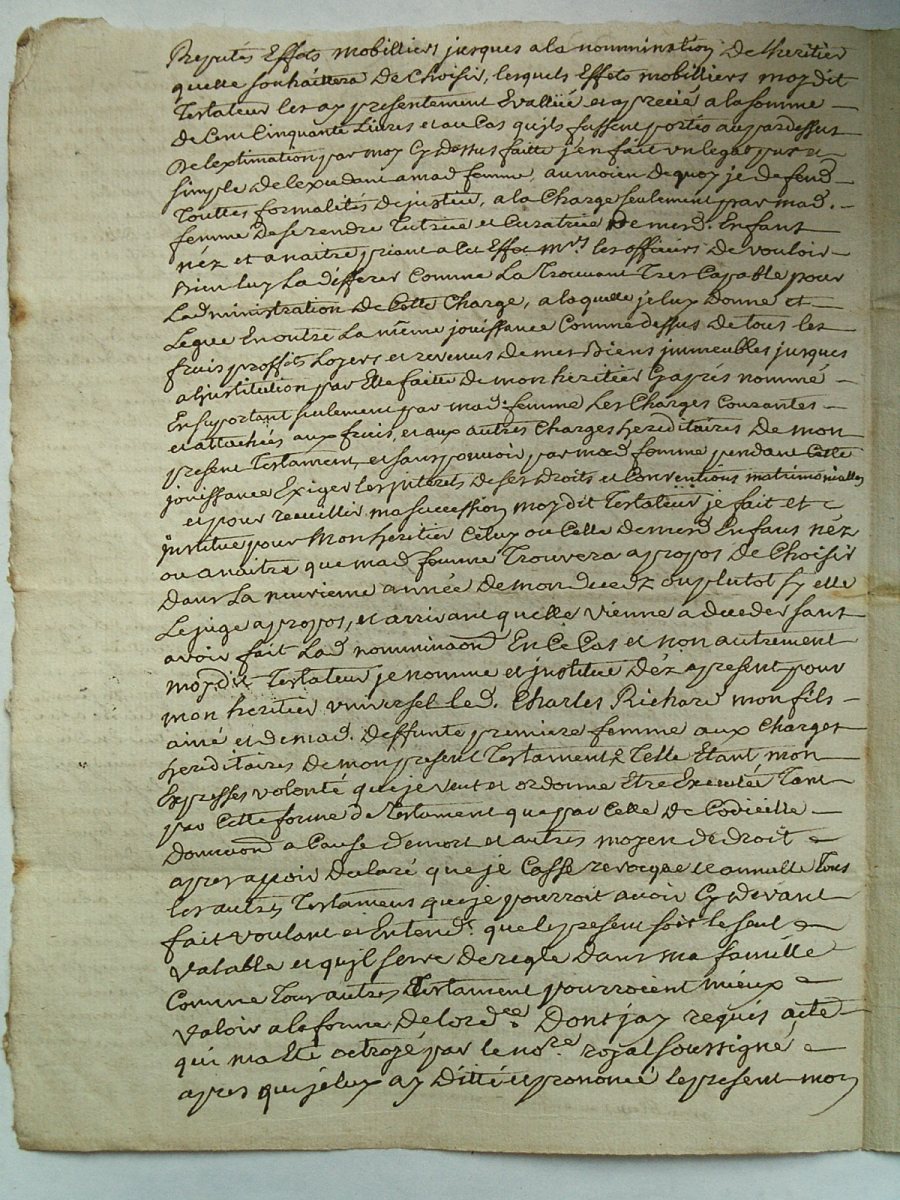 Reputés Effets mobilliers jusques a la nommination De lheritier
quelle souhaittera De Choisir, lesquels Effets mobilliers moydit
Testateur les ay presentement Evallüé et aprecié a la somme
de Cent Cinquante Livres et au Cas qu'jls fussent portés au pardessus
De lextimation par moy Cy dessus faitte j'en fait un legat pur et
simple de lexcedant a mad femme, au moien de quoy je defend
Touttes formalités de justice, a la Charge seulement par mad.
femme De se rendre Tutrice et Curatrice De mesd. Enfant
néz et a naitre priant a cet Effet mrs. les officiers De vouloir
Bien luy La differer Comme La Trouvant Tres Capable pour
Ladministration De Cette Charge, a laquelle je luy Donne et
Legue En outre La même jouissance Comme dessus De tous les
fruis proffits Loyers et revenus De mes Biens jmmeubles jusques
a ljnstitution par Elle faitte de mon heritier Cy aprés nommé
En suportant seulement par mad: femme Les Charges Courantes
et attachées aux fruis, et aux autres Charges hereditaires De mon
present Testament, et sans pouvoir par mad femme pendant Cette
jouissance Exiger les jnterets de ses Droits et Conventions matrimonialles
et pour recueillir ma succession moy dit Testateur je fait et
jnstitue pour Mon heritier Celuy ou Celle De mesd Enfans néz
ou a naitre que mad femme Trouvera a propos De Choisir
Dans La neuvieme année De mon decedz ou plutot sy elle
Le juge a propos, et arrivant quelle vienne a deceder sans
avoir fait Lad nominaond En Ce Cas et non autrement
moy dit Testateur je nomme et jnstitue déz a present pour
mon heritier universel led. Charles Richard mon fils
ainé et de mad. Deffunte premiere femme aux Charges
hereditaires De mon present Testament & Telle Etant mon
Expresses volonté que je veut et ordonne Etre Executée Tant
par Cette forme de Testament que par Celle De Codicille
Donnaond a Cause de mort et autres moyen de droit
apres avoir declaré que je Casse revocque et annulle Tous
les autres Testamens que je pourroit avoir Cy devant
fait voulant et Entend.t que le present soit le seul
valable et qu'jl serve De regle Dans ma famille
Comme Tous autres Testament pourroient mieux
valoir a la forme De lord.ce Dont j'ay requis acte
qui m'a Eté octroyé par le no.re royal soussigné
apres que je luy ay Ditté et prononcé le present mon